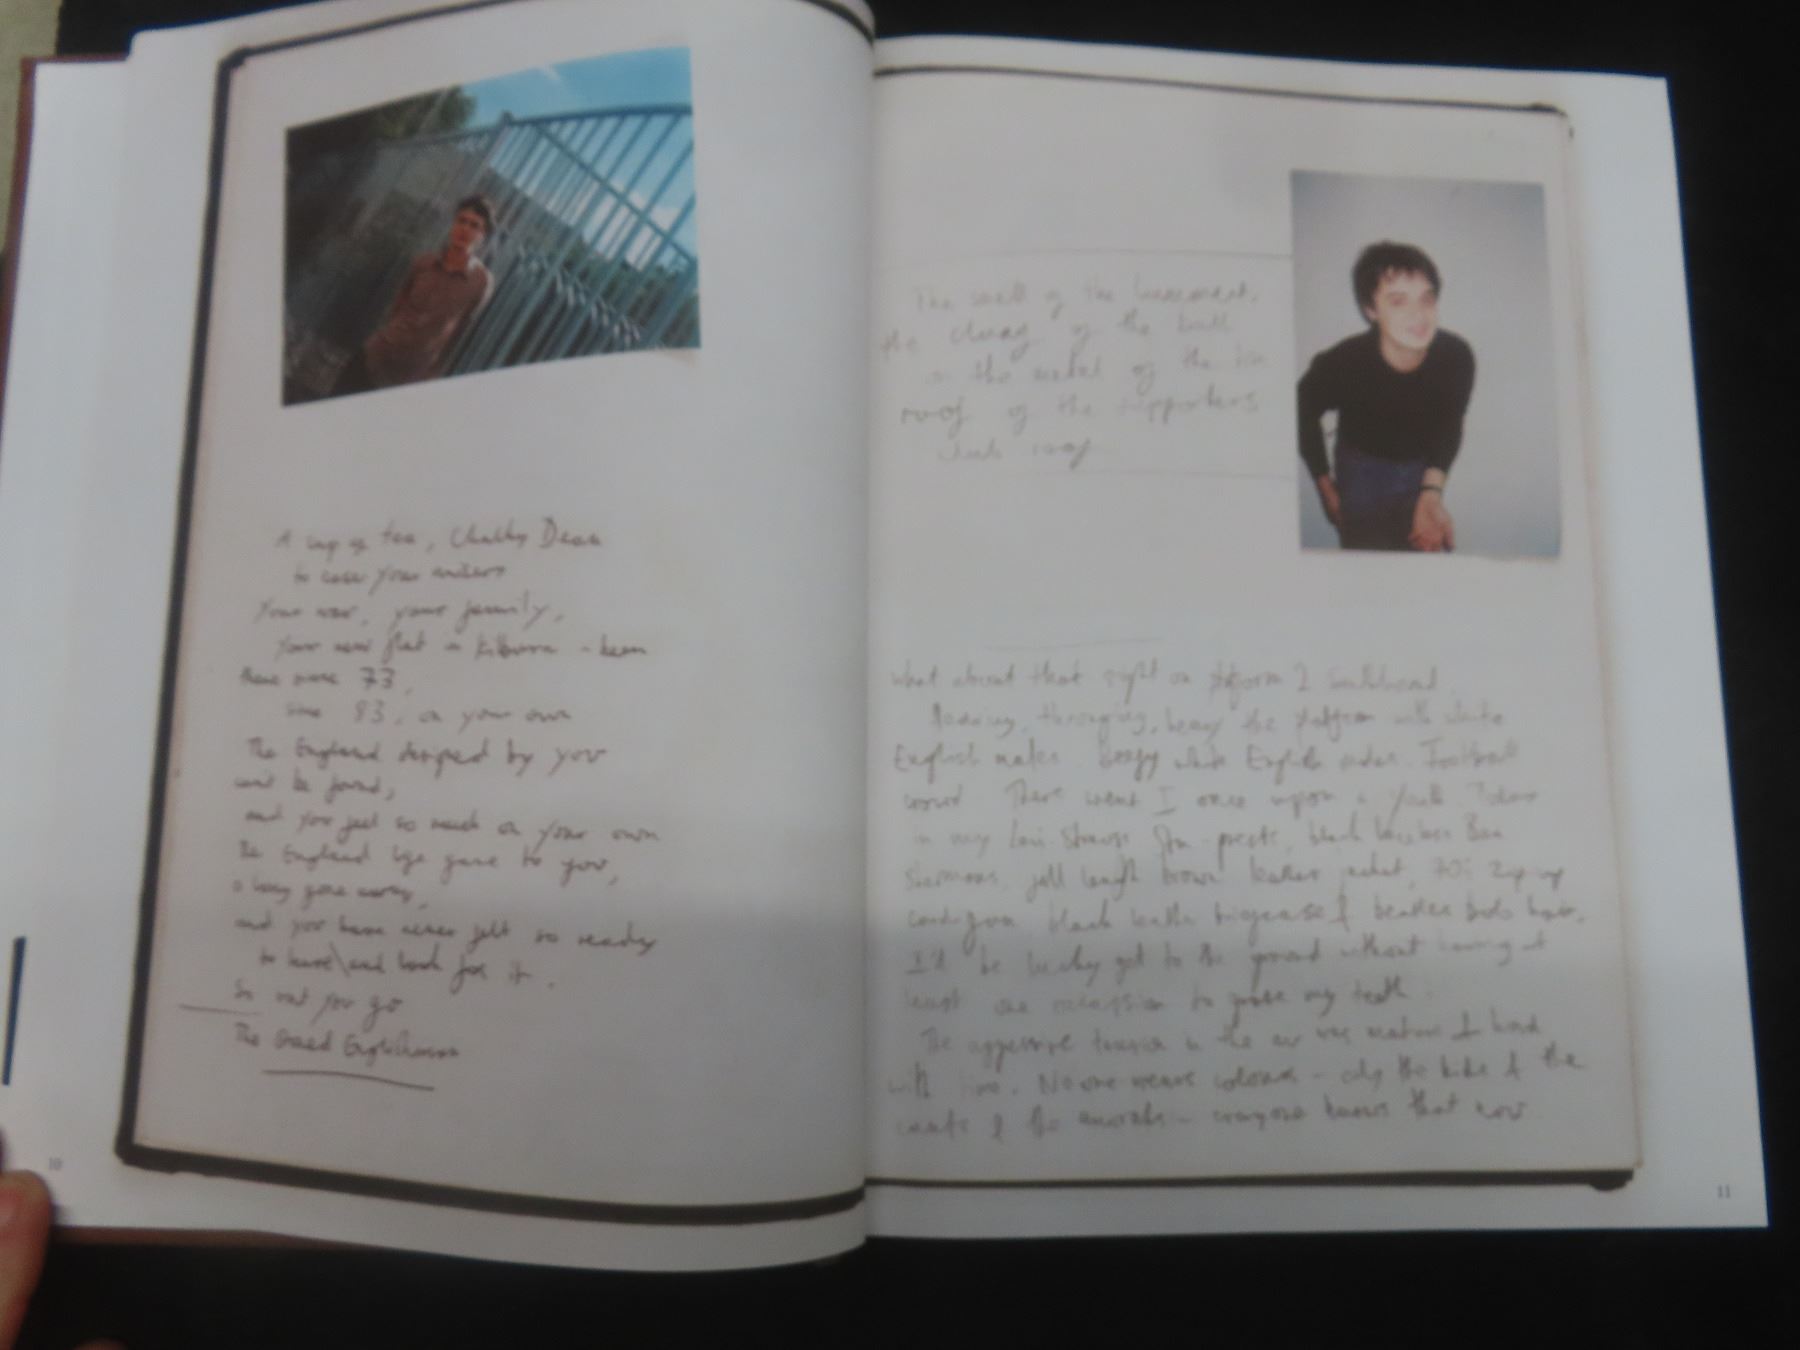 A cup of tea, Chalky Dean
to ease your
Your war, your family,
Your new flat in Kilburn - been
there since 73,
since 83, on your own
The England despised by you
can't be found,
and you feel so much on your own
The England life gave to you,
a long gone
and you have never felt so ready
to leave \ and look for it.
So out you go
The Good Englishman
10
The smell of the
the clang of the ball
on the metal of the tin
roof of the supporters
roof
What about that sight on platform 2 Southbound
thronging, heavy the platform with white
English males. Beefy white English males. Football
crowd. There went I once upon a youth. Today
in my Levi-Strauss Sta-prests, black leather Ben
Shermans, full length brown leather jacket, 70s zip up
cardigan black leather & beatles bob hair.
I'll be lucky get to the ground without having at
least one occassion to my teeth.
The aggressive tension in the air was
with No one wears colours - only the kids & the
& the - everyone knows that now
11